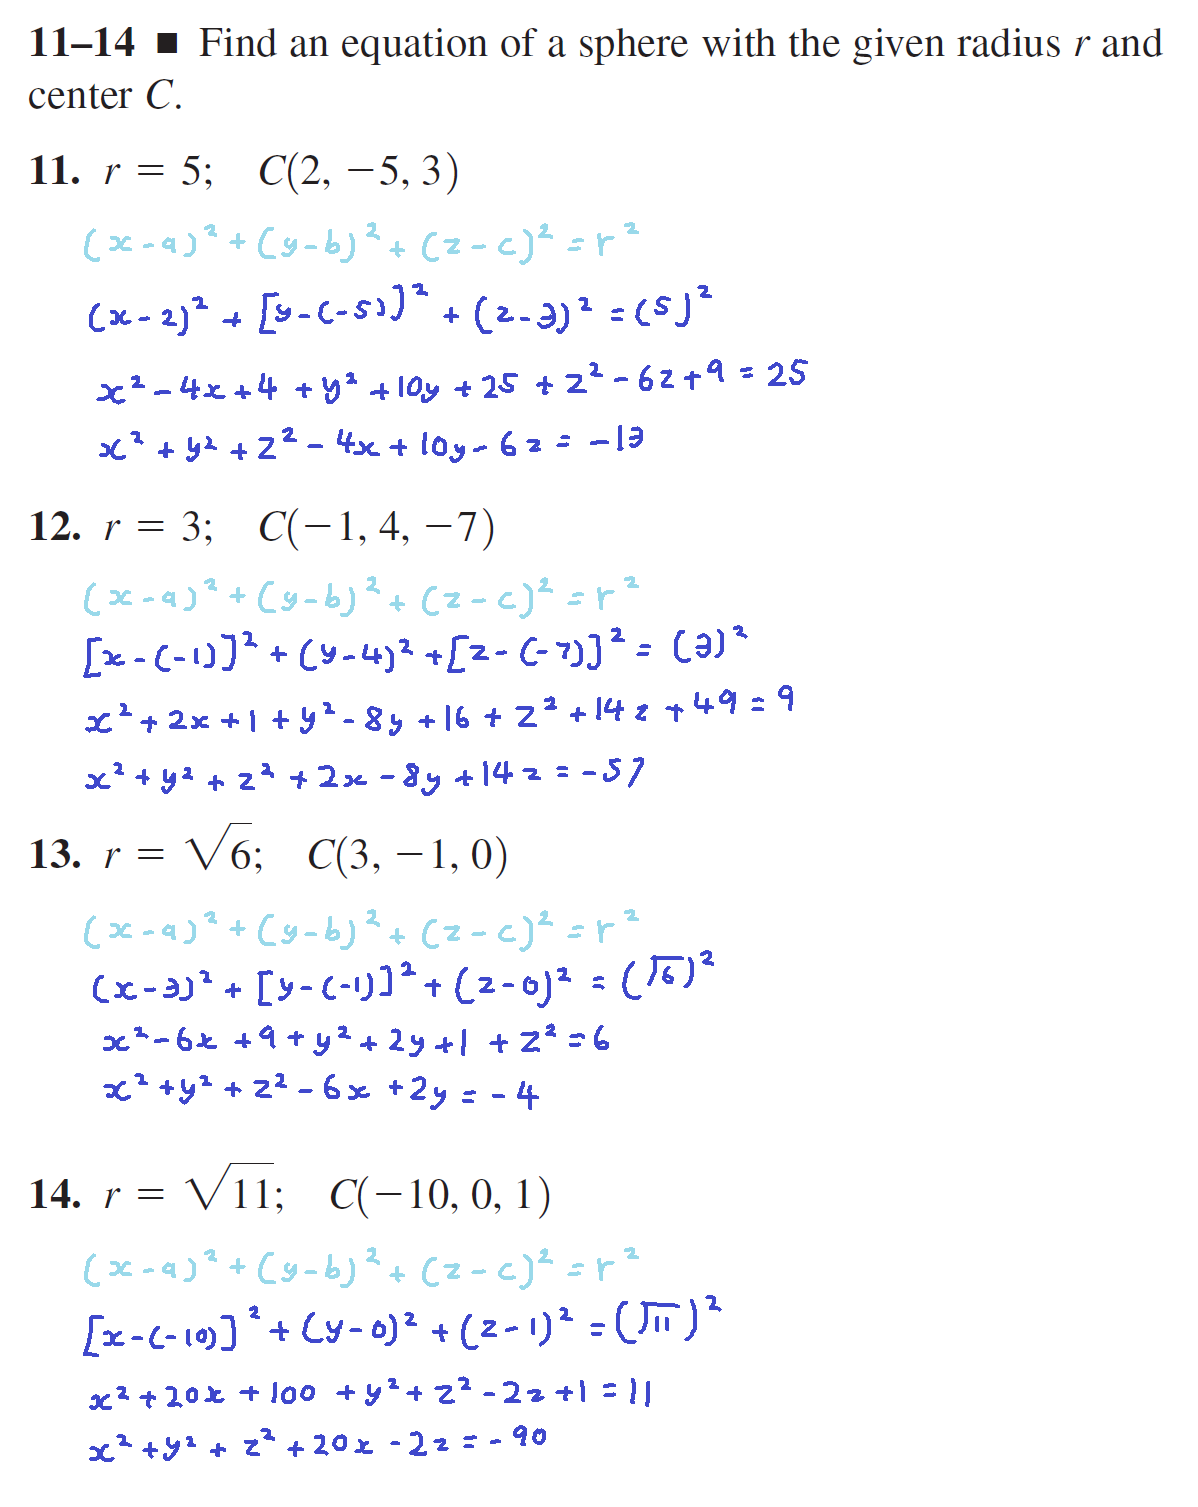 11–14 ■ Find an equation of a sphere with the given radius r and
center C.
11. r = 5; C(2, −5, 3)
(x-a)² + (y-b)² + (z-c)² = r²
(x-2)² + [y-(-5)]² + (z-3)² = (5)²
x² - 4x + 4 + y² + 10y + 25 + z² - 6z + 9 = 25
x² + y² + z² - 4x + 10y - 6z = -13
12. r = 3; C(−1, 4, −7)
(x-a)² + (y-b)² + (z-c)² = r²
[x-(-1)]² + (y-4)² + [z-(-7)]² = (3)²
x² + 2x + 1 + y² - 8y + 16 + z² + 14z + 49 = 9
x² + y² + z² + 2x - 8y + 14z = -57
13. r = √6; C(3, −1, 0)
(x-a)² + (y-b)² + (z-c)² = r²
(x-3)² + [y-(-1)]² + (z-0)² = (√6)²
x² - 6x + 9 + y² + 2y + 1 + z² = 6
x² + y² + z² - 6x + 2y = -4
14. r = √11; C(−10, 0, 1)
(x-a)² + (y-b)² + (z-c)² = r²
[x-(-10)]² + (y-0)² + (z-1)² = (√11)²
x² + 20x + 100 + y² + z² - 2z + 1 = 11
x² + y² + z² + 20x - 2z = -90